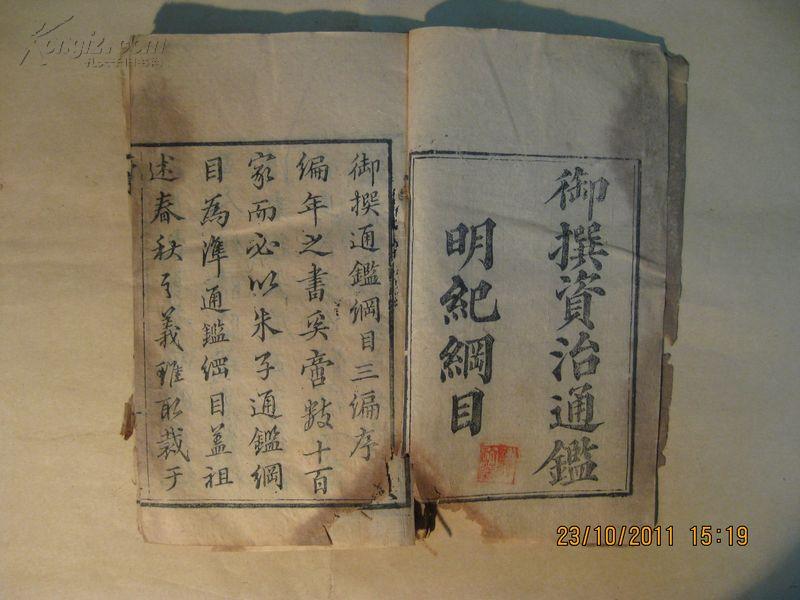 御撰資治通鑑
明紀綱目
御撰通鑑綱目三編序
編年之書奚啻數十百
家而必以朱子通鑑綱
目為準通鑑綱目蓋祖
述春秋之義雖取裁于
23/10/2011 15:19
Kongfz.com